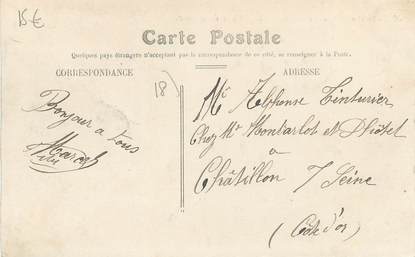 15€
Carte Postale
Quelques pays étrangers n'acceptant pas la correspondance de ce côté, se renseigner à la Poste.
CORRESPONDANCE
ADRESSE
18)
Bonjour a tous
Marcel
Mr Alphonse Tinturier
Chez Mr Montarlot et
a
Châtillon s/ Seine
(Côte d'or)